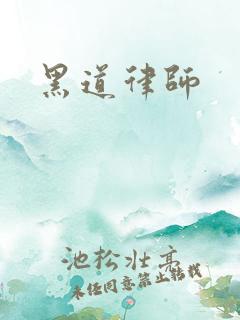 黑道律師
池松壯亮
未经同意禁止转载